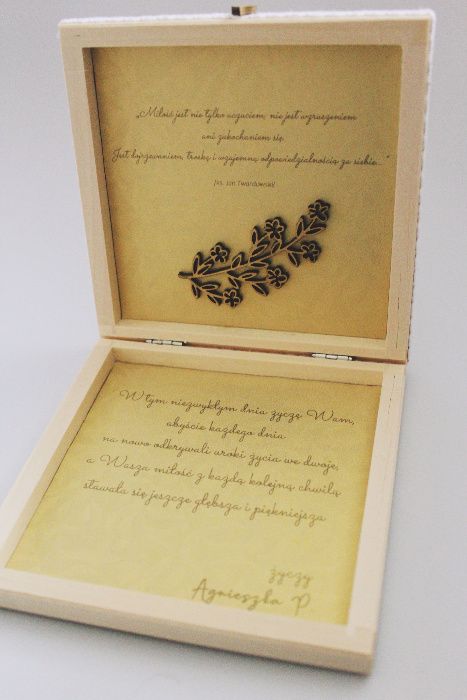 „Miłość jest nie tylko uczuciem, nie jest wzruszeniem
ani zakochaniem się.
Jest dojrzewaniem, troską i wzajemną odpowiedzialnością za siebie..."
/ks. Jan Twardowski/
W tym niezwykłym dniu życzę Wam,
abyście każdego dnia
na nowo odkrywali uroki życia we dwoje,
a Wasza miłość z każdą kolejną chwilą
stawała się jeszcze głębsza i piękniejsza
życzy
Agnieszka P